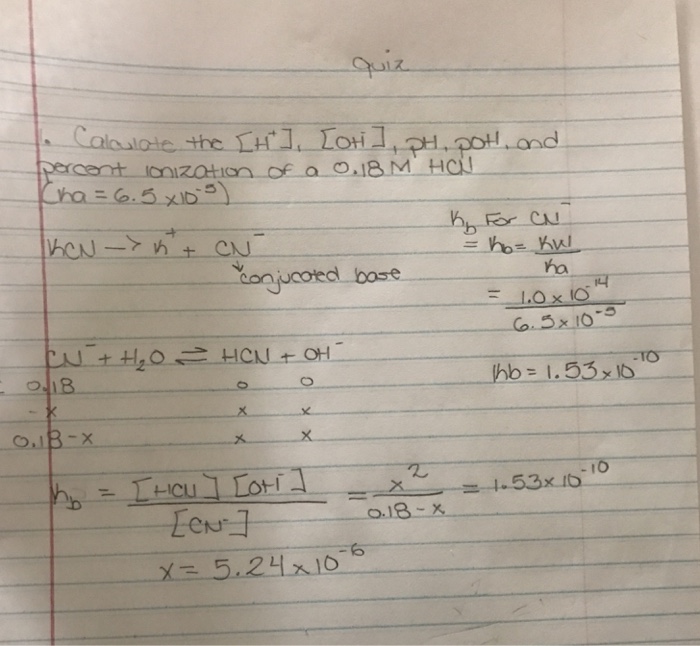 Quiz
1. Calculate the [H⁺], [OH⁻], pH, pOH, and
percent ionization of a 0.18 M HCN
(Ka = 6.5 x10⁻⁵)
KCN → K⁺ + CN⁻
conjucated base
Kb For CN⁻
= Kb = Kw/Ka
= 1.0 x 10⁻¹⁴ / 6.5 x 10⁻⁵
Kb = 1.53 x 10⁻¹⁰
CN⁻ + H₂O ⇌ HCN + OH⁻
0.18 0 0
-x x x
0.18-x x x
Kb = [HCN] [OH⁻] / [CN⁻] = x² / 0.18 - x = 1.53 x 10⁻¹⁰
x = 5.24 x 10⁻⁶